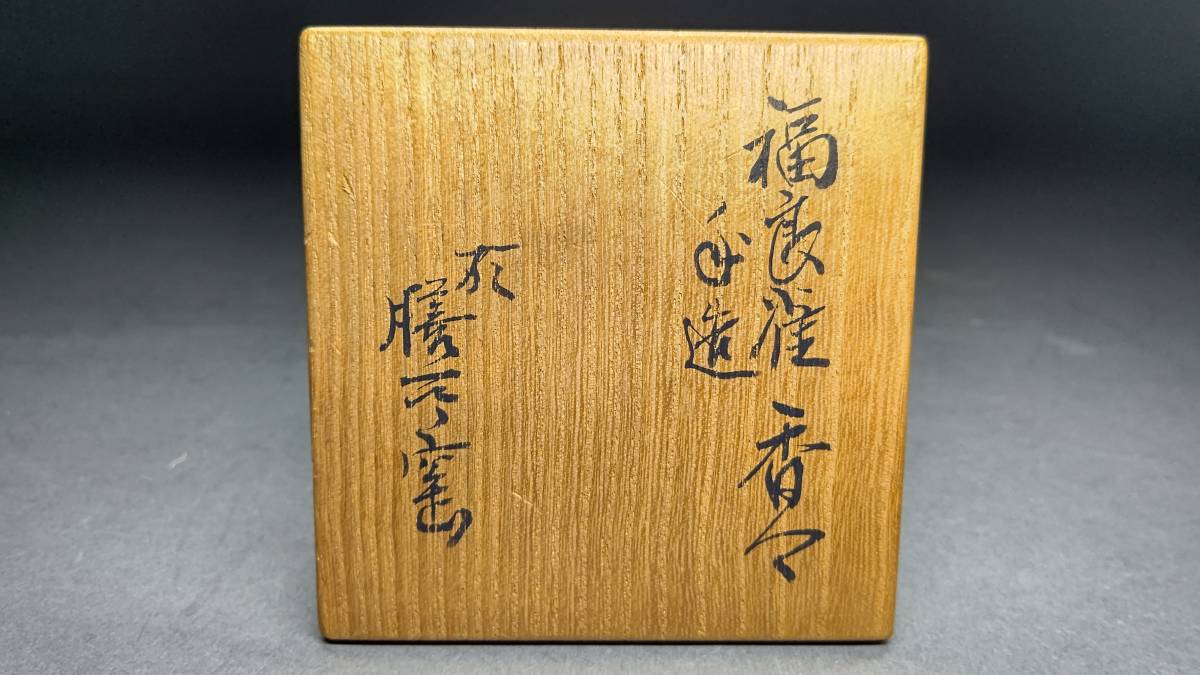 福良雀 香合
手造
於
膳所窯